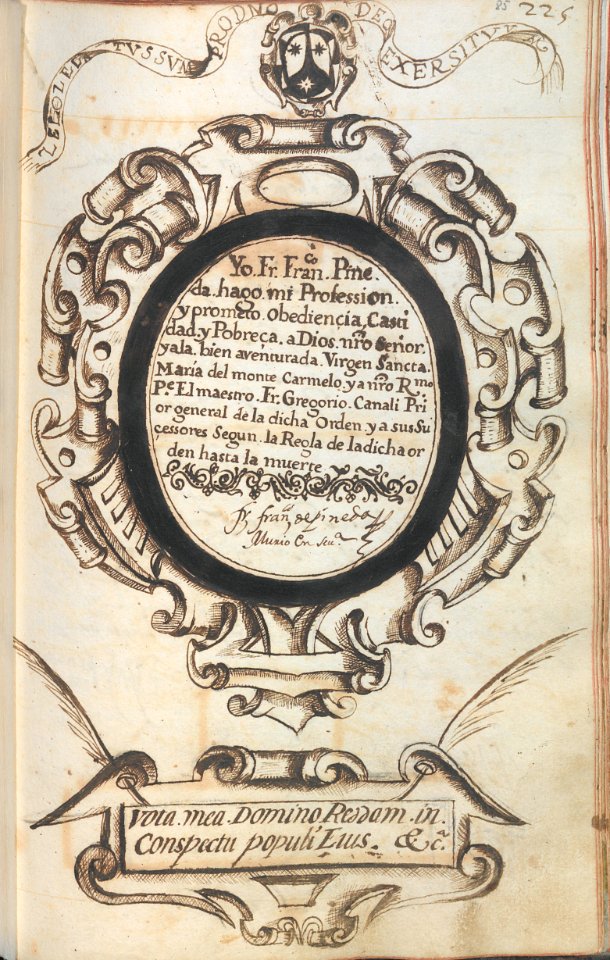 85 225
ZELO ZELATUS SUM PRO DNO DEO EXERSITUU
Yo. Fr. Franco. Pine
da. hago. mi Profession.
y prometo. obediençia, Casti
dad, y Pobreça. a Dios. nro Señor.
y a la. bien aventurada. Virgen Sancta.
Maria del monte Carmelo, y a nro Rmo
Pe. El maestro. Fr. Gregorio. Canali Pri
or general de la dicha Orden. y a sus Su
çessores Segun. la Regla de la dicha or
den hasta la muerte
fr. franco de pineda
Murio En seua
Vota. mea. Domino Reddam. in.
Conspectu populi Eius. &ca.